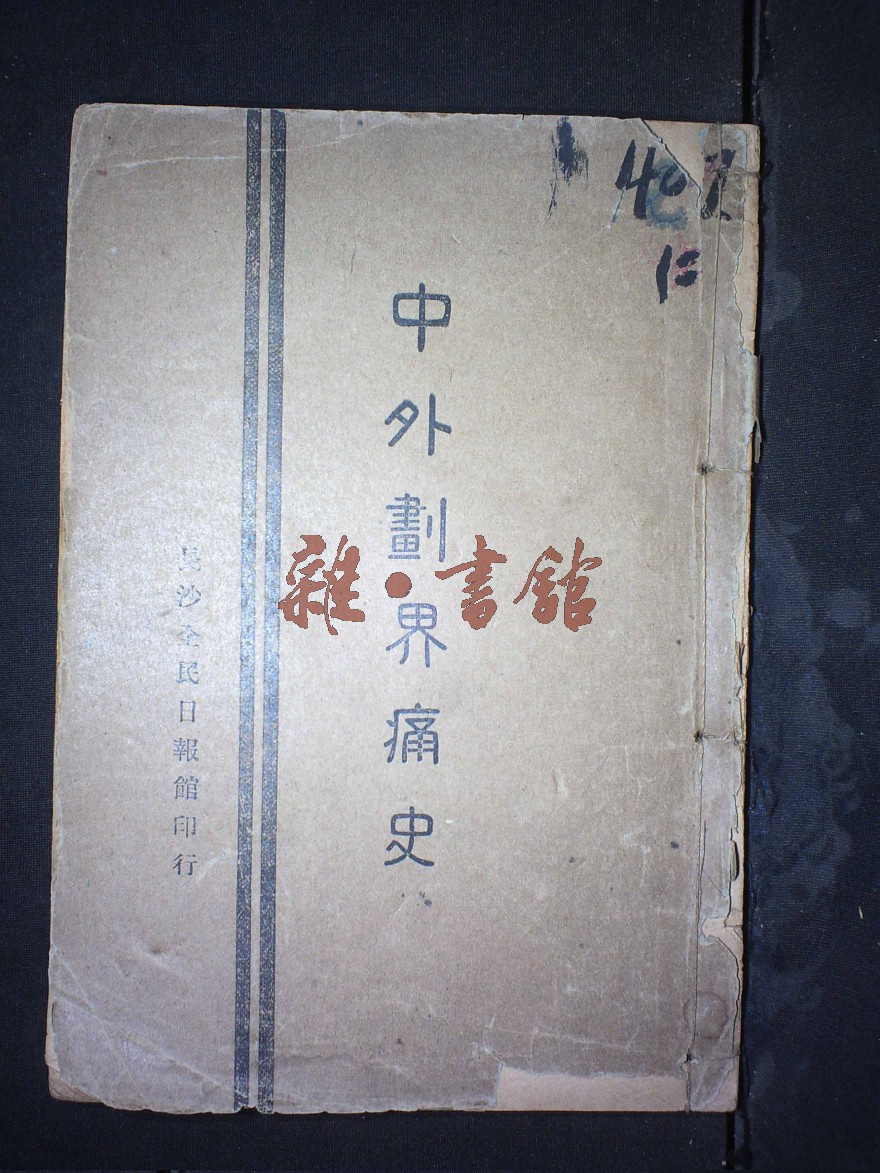 中外劃界痛史
長沙全民日報館印行
雜·書館
40
仁